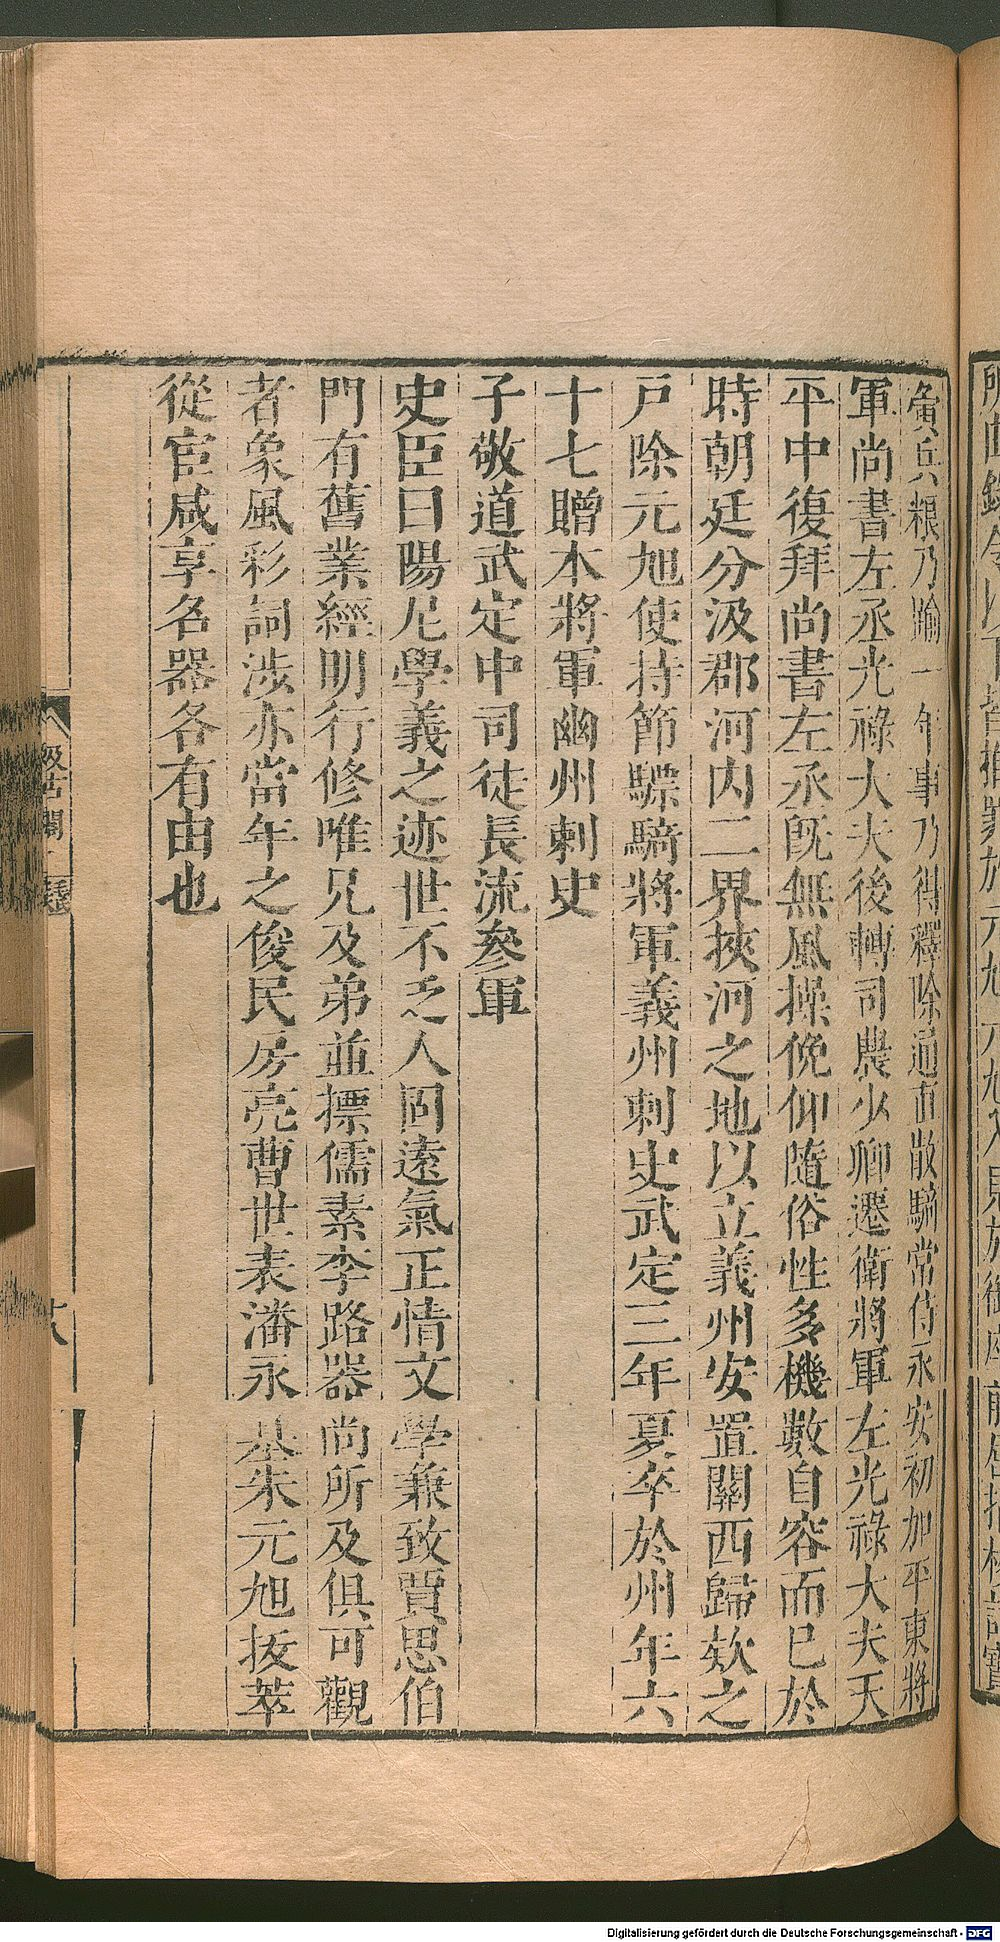 寅兵糧乃踰一年事乃得釋除通直散騎常侍永安初加平東將
軍尚書左丞光祿大夫後轉司農少卿遷衛將軍左光祿大夫天
平中復拜尚書左丞旣無風操俛仰隨俗性多機數自容而已於
時朝廷分汲郡河內二界挾河之地以立義州安置關西歸欵之
戸除元旭使持節驃騎將軍義州刺史武定三年夏卒於州年六
十七贈本將軍幽州刺史
子敬道武定中司徒長流參軍
史臣曰陽尼學義之迹世不乏人固遠氣正情文學兼致賈思伯
門有舊業經明行修唯兄及弟並摽儒素李路器尚所及俱可觀
者象風彩詞涉亦當年之俊民房亮曹世表潘永基朱元旭拔萃
從宦咸享名器各有由也
汲古閣
十八
Digitalisierung gefördert durch die Deutsche Forschungsgemeinschaft - DFG